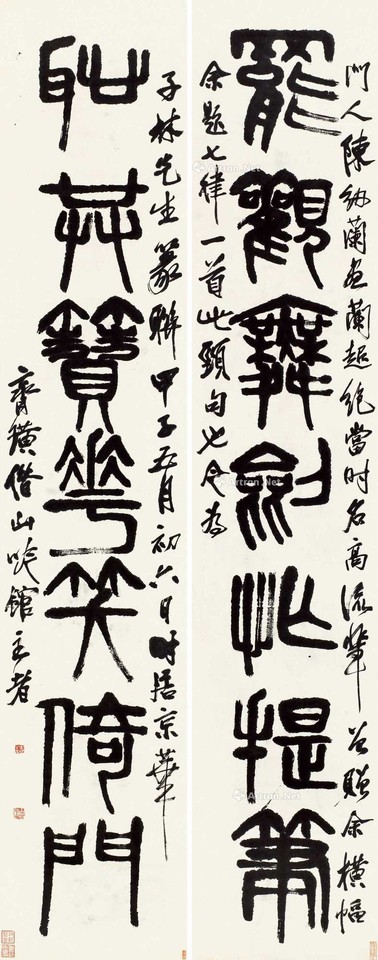 門人陳紉蘭畫蘭超絕當時名高流輩贈余橫幅
罷觀舞劍忙提筆
余題七律一首此頸句也今為
子林先生篆聯甲子五月初六日時居京華
恥共簪花笑倚門
齊璜借山吟館主者
Artron.Net